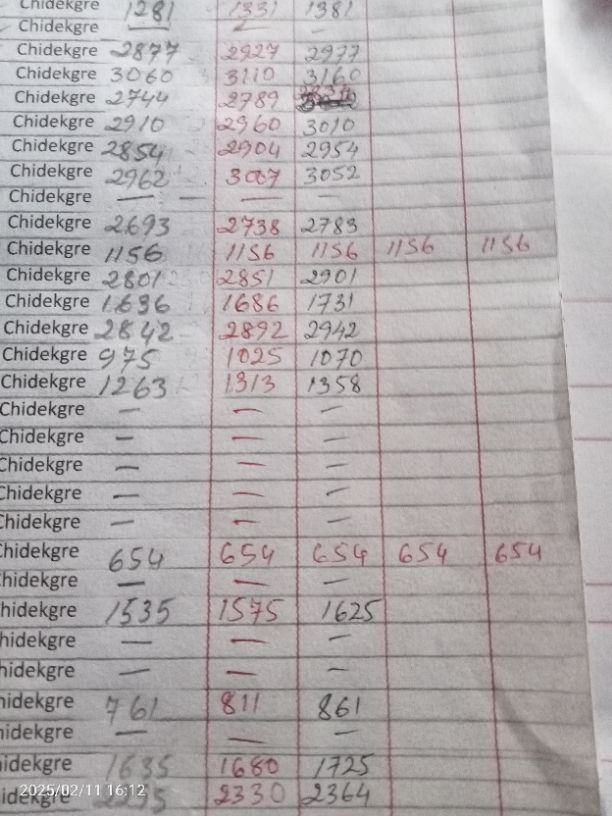 Chidekgre 1281 1331 1381
Chidekgre — — —
Chidekgre 2877 2927 2977
Chidekgre 3060 3110 3160
Chidekgre 2744 2789
Chidekgre 2910 2960 3010
Chidekgre 2854 2904 2954
Chidekgre 2962 3007 3052
Chidekgre — — — —
Chidekgre 2693 2738 2783
Chidekgre 1156 1156 1156 1156 1156
Chidekgre 2801 2851 2901
Chidekgre 1636 1686 1731
Chidekgre 2842 2892 2942
Chidekgre 975 1025 1070
Chidekgre 1263 1313 1358
Chidekgre — — —
Chidekgre — — —
Chidekgre — — —
Chidekgre — — —
Chidekgre — — —
Chidekgre 654 654 654 654 654
Chidekgre — — —
hidekgre 1535 1575 1625
hidekgre — — —
hidekgre — — —
hidekgre 761 811 861
hidekgre — — —
idekgre 1635 1680 1725
idekgre 2330 2364
2025/02/11 16:12